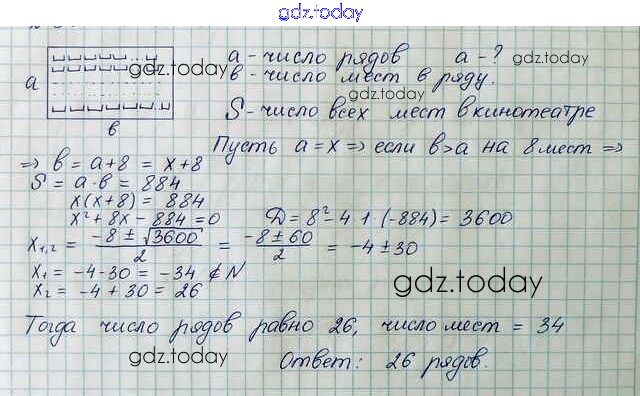 gdz.today
a - число рядов a - ? gdz.today
в - число мест в ряду.
gdz.today
a
gdz.today
S - число всех мест в кинотеатре
в
Пусть a = x ⇒ если в>a на 8 мест ⇒
⇒ в = a+8 = x+8
S = a·в = 884
x(x+8) = 884
x²+8x-884=0 D = 8²-4·1·(-884) = 3600
x₁,₂ = (-8 ± √3600)/2 = (-8±60)/2 = -4±30
x₁ = -4-30 = -34 ∉ N
x₂ = -4+30 = 26
gdz.today
Тогда число рядов равно 26, число мест = 34
gdz.today
Ответ: 26 рядов.